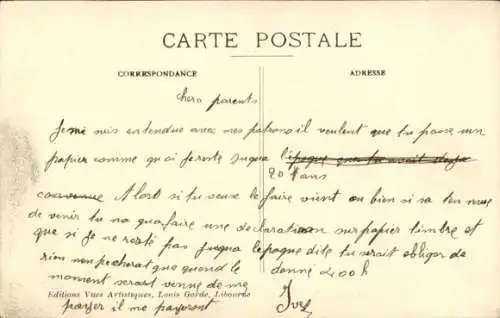 CARTE POSTALE
CORRESPONDANCE
ADRESSE
chers parents
Je mi suis entendue avec mes patrons il veulent que tu passe un
papier comme quoi je reste juqua l'époque que tu avait deja
20 ans
convenue Alors si tu veuse le faire vient ou bien si sa ten nuie
de venir tu na qua faire une déclaration sur papier timbre et
que si je ne resté pas juqua lepoque dite tu serait obliger de
rien nen pecherat que quand le donne 400 h
moment serait venue de me
Editions Vues Artistiques, Louis Garde, Libourne
payer il me payeront Yves